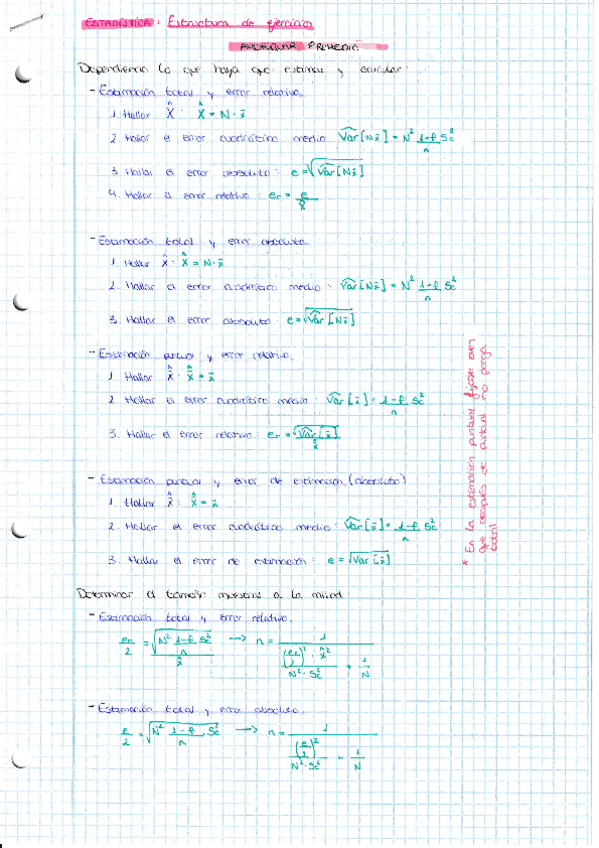 ESTADÍSTICA : Estructura de ejercicios
AVERIGUAR PROMEDIO
Dependiendo lo que haya que estimar y calcular:
- Estimación total y error relativo.
1. Hallar X̂ : X̂ = N · x̄
2. Hallar el error cuadrático medio: V̂ar [Nx̄] = N² (1-f)/n Sc²
3. Hallar el error absoluto : e = √V̂ar [Nx̄]
4. Hallar el error relativo : er = e/X̂
- Estimación total y error absoluto.
1. Hallar X̂ : X̂ = N · x̄
2. Hallar el error cuadrático medio : V̂ar [Nx̄] = N² (1-f)/n Sc²
3. Hallar el error absoluto : e = √V̂ar [Nx̄]
- Estimación puntual y error relativo.
1. Hallar X̄̂ : X̄̂ = x̄
2. Hallar el error cuadrático medio : V̂ar [x̄] = (1-f)/n Sc²
3. Hallar el error relativo : er = √V̂ar [x̄] / X̄̂
- Estimación puntual y error de estimación (absoluto)
1. Hallar X̄̂ : X̄̂ = x̄
2. Hallar el error cuadrático medio : V̂ar [x̄] = (1-f)/n Sc²
3. Hallar el error de estimación : e = √Var [x̄]
* En la estimación puntual fijarse en
que después de puntual no ponga
total
Determinar el tamaño muestral a la mitad
- Estimación total y error relativo.
er/2 = √(N² (1-f)/n Sc²) / X̂ → n = 1 / ((er/2)² · X̂² / (N² · Sc²) + 1/N)
- Estimación total y error absoluto.
e/2 = √(N² (1-f)/n Sc²) → n = 1 / ((e/2)² / (N² · Sc²) - 1/N)